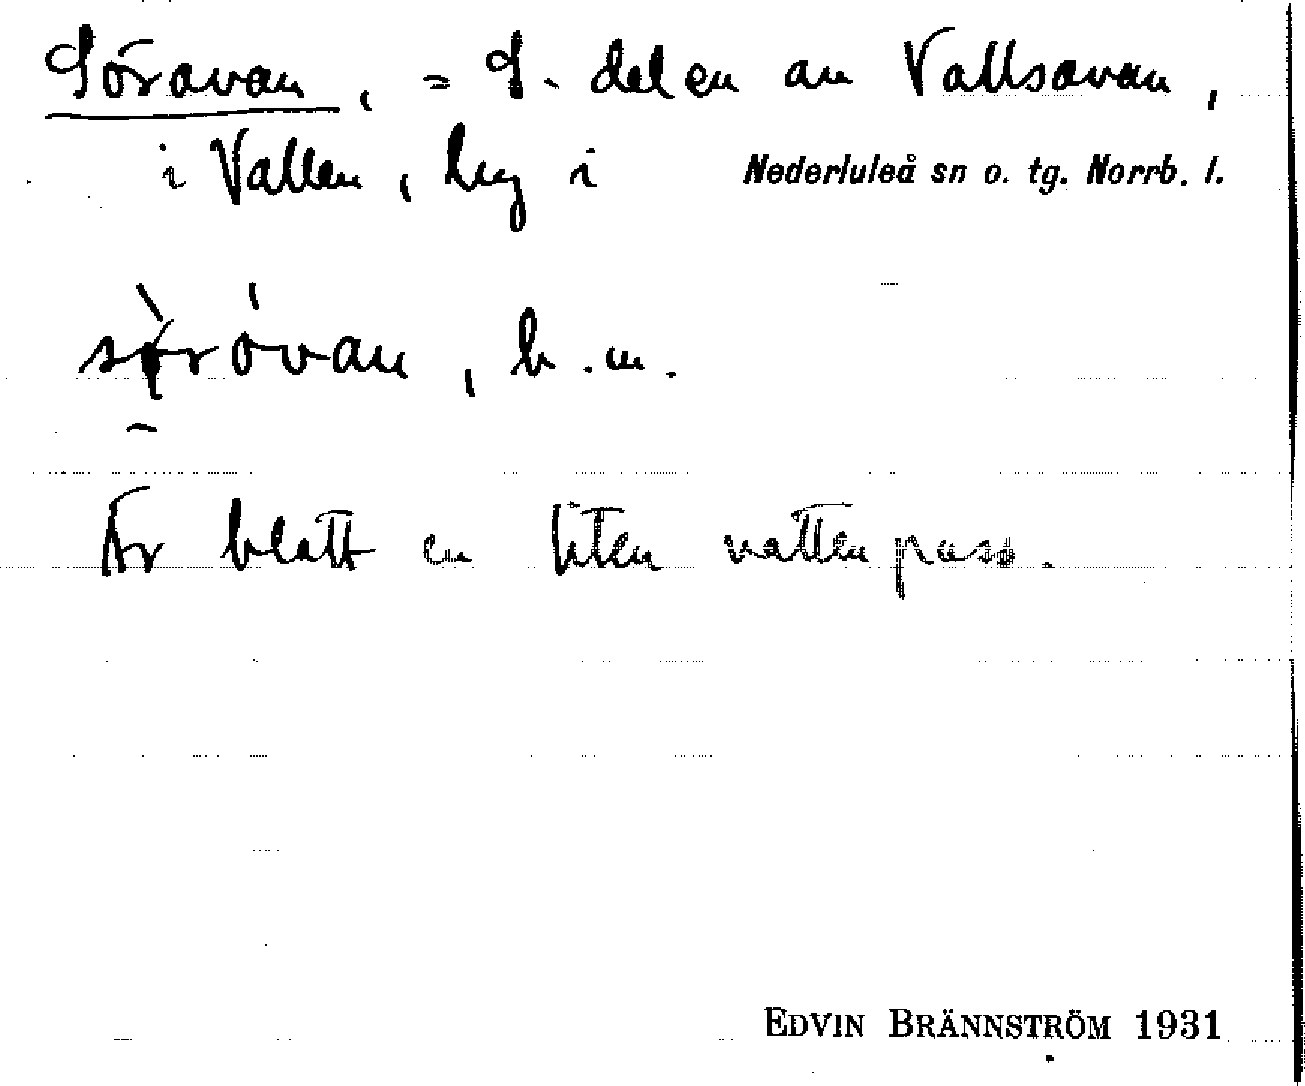 Söravan, = S. delen av Vallsavan,
i Vallen, by i Nederluleå sn o. tg. Norrb. l.
sørövan, b.m.
Är blått en liten vattenpuss.
EDVIN BRÄNNSTRÖM 1931